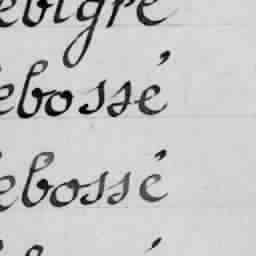 ebigre
ebossé
ebossé